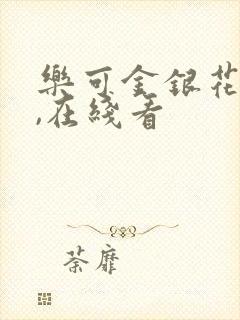 樂可金銀花
,在綫看
荼靡